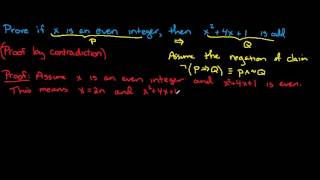 Prove if x is an even integer, then x² + 4x + 1 is odd
P ⇒ Q
(Proof by contradiction)
Assume the negation of claim
¬(P ⇒ Q) ≡ P ∧ ¬Q
Proof: Assume x is an even integer and x² + 4x + 1 is even.
This means x = 2n and x² + 4x + 1